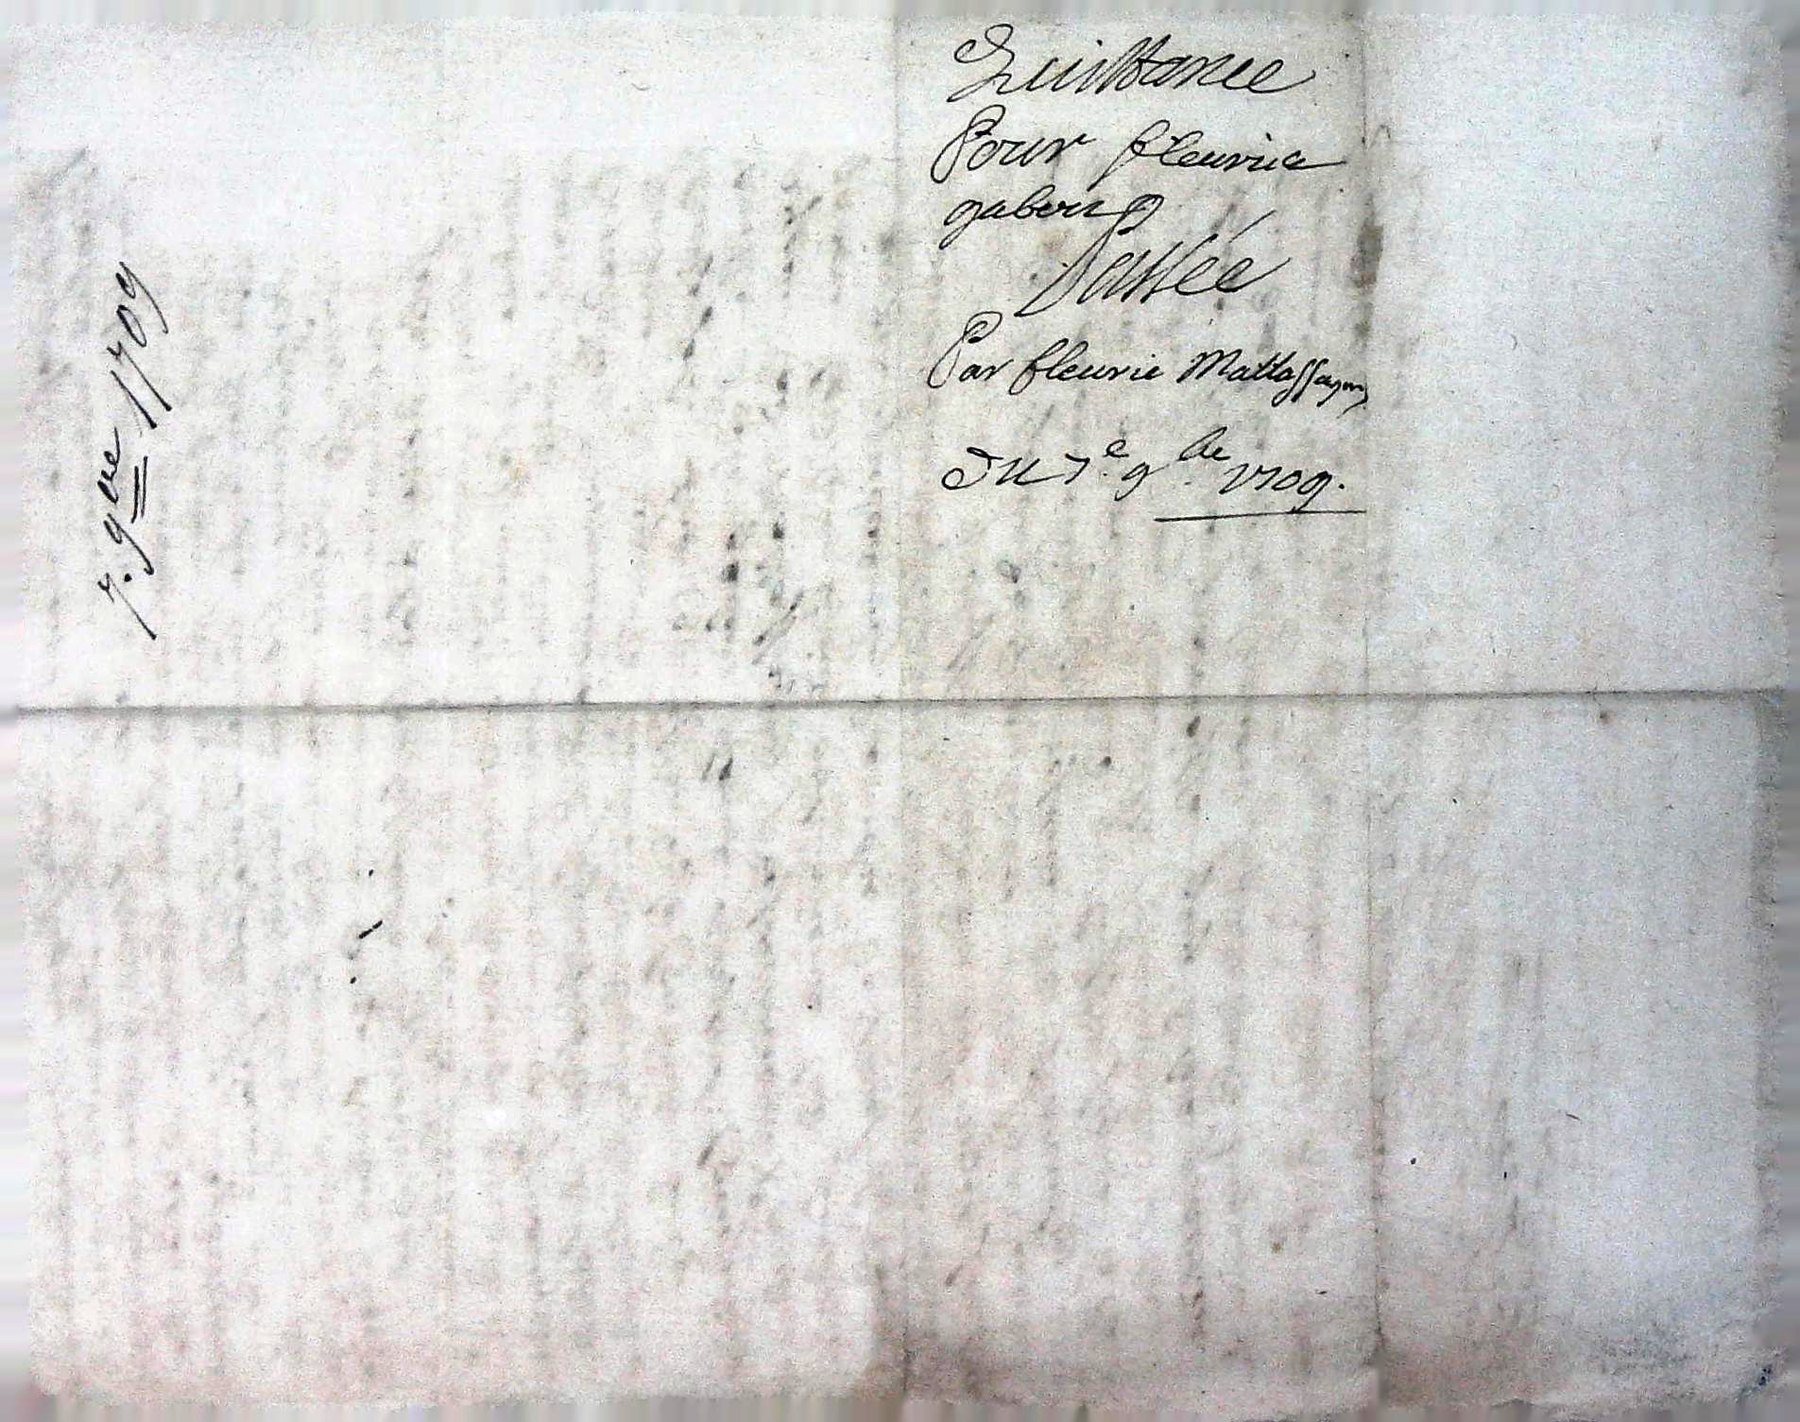 Quittance
Pour fleurie
gabory
Passée
Par fleurie Mattassagny
Du 7e 9bre 1709.
7. 9bre 1709